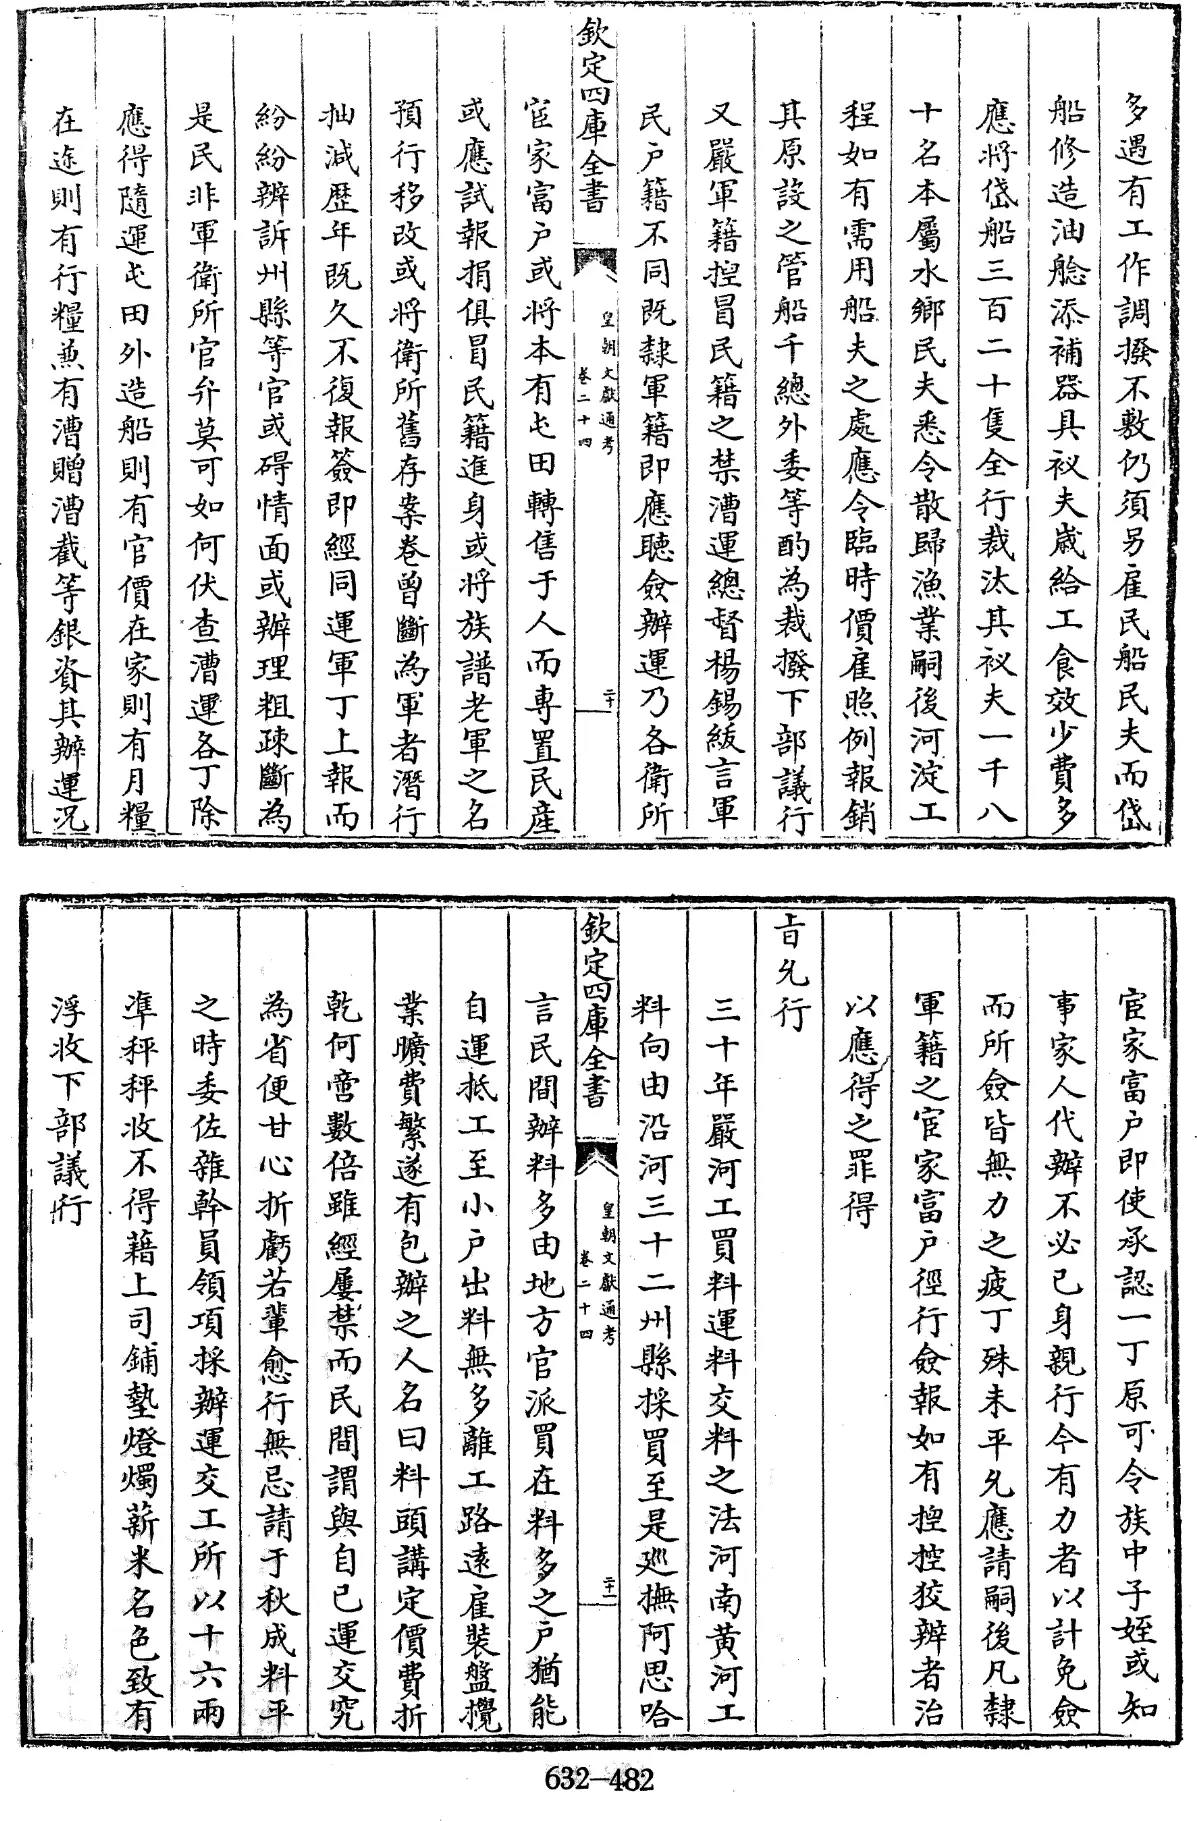 多遇有工作調撥不敷仍須另雇民船民夫而岱
船修造油艌添補器具衩夫歲給工食效少費多
應將岱船三百二十隻全行裁汰其衩夫一千八
十名本屬水鄉民夫悉令散歸漁業嗣後河淀工
程如有需用船夫之處應令臨時價雇照例報銷
其原設之管船千總外委等酌為裁撥下部議行
又嚴軍籍揑冒民籍之禁漕運總督楊錫紱言軍
民户籍不同既隸軍籍即應聽僉辦運乃各衛所
欽定四庫全書
皇朝文獻通考
卷二十四
二十
宦家富户或將本有屯田轉售于人而專置民產
或應試報捐俱冒民籍進身或將族譜老軍之名
預行移改或將衛所舊存案卷曾斷為軍者潛行
抽減歷年既久不復報簽即經同運軍丁上報而
紛紛辨訴州縣等官或碍情面或辦理粗疎斷為
是民非軍衛所官弁莫可如何伏查漕運各丁除
應得隨運屯田外造船則有官價在家則有月糧
在途則有行糧兼有漕贈漕截等銀資其辦運況
宦家富户即使承認一丁原可令族中子姪或知
事家人代辦不必己身親行今有力者以計免僉
而所僉皆無力之疲丁殊未平允應請嗣後凡隸
軍籍之宦家富户徑行僉報如有揑控狡辨者治
以應得之罪得
旨允行
三十年嚴河工買料運料交料之法河南黄河工
料向由沿河三十二州縣採買至是廵撫阿思哈
欽定四庫全書
皇朝文獻通考
卷二十四
二十一
言民間辦料多由地方官派買在料多之户猶能
自運抵工至小户出料無多離工路遠雇裝盤攪
業曠費繁遂有包辦之人名曰料頭講定價費折
乾何啻數倍雖經屢禁而民間謂與自己運交究
為省便甘心折虧若輩愈行無忌請于秋成料平
之時委佐雜幹員領項採辦運交工所以十六兩
凖秤秤收不得藉上司鋪墊燈燭薪米名色致有
浮收下部議行
632-482